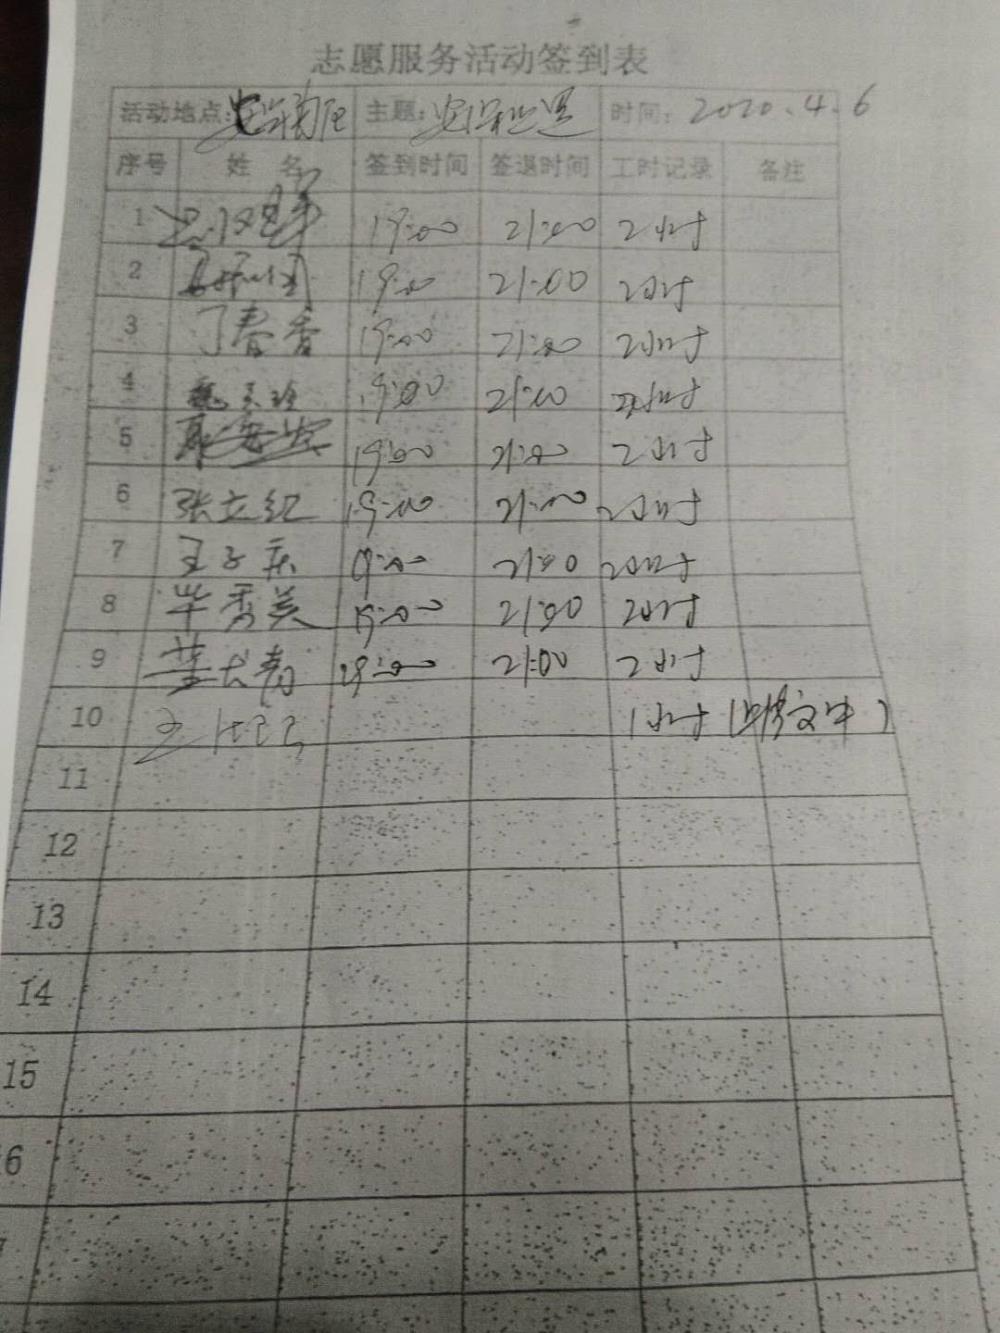 志愿服务活动签到表
活动地点: 主题: 时间: 2020.4.6
序号 姓 名 签到时间 签退时间 工时记录 备注
1 19:00 21:00 2小时
2 19:00 21:00 2小时
3 丁春香 19:00 21:00 2小时
4 19:00 21:00 2小时
5 19:00 21:00 2小时
6 张立纪 19:00 21:00 2小时
7 王子庆 19:00 21:00 2小时
8 毕秀美 19:00 21:00 2小时
9 董长青 19:00 21:00 2小时
10 1小时
11
12
13
14
15
6